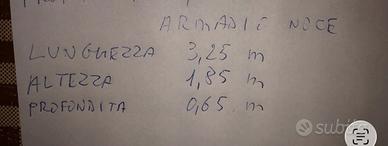 ARMADIO NOCE
LUNGHEZZA 3,25 m
ALTEZZA 1,85 m
PROFONDITA 0,65 m
subito